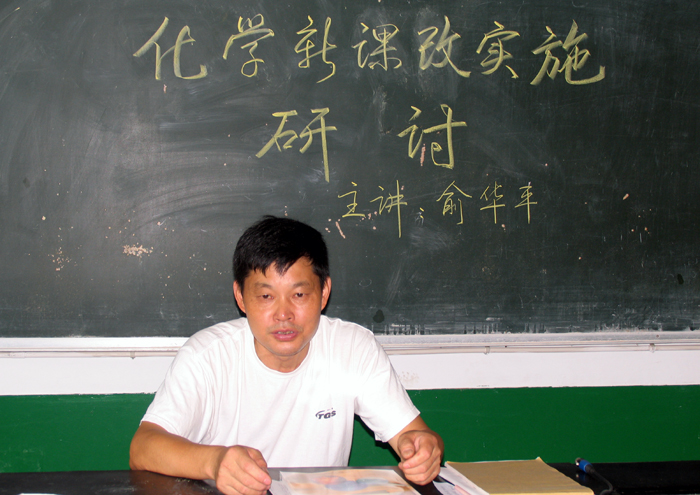 化学新课改实施
研讨
主讲：俞华平
TGS